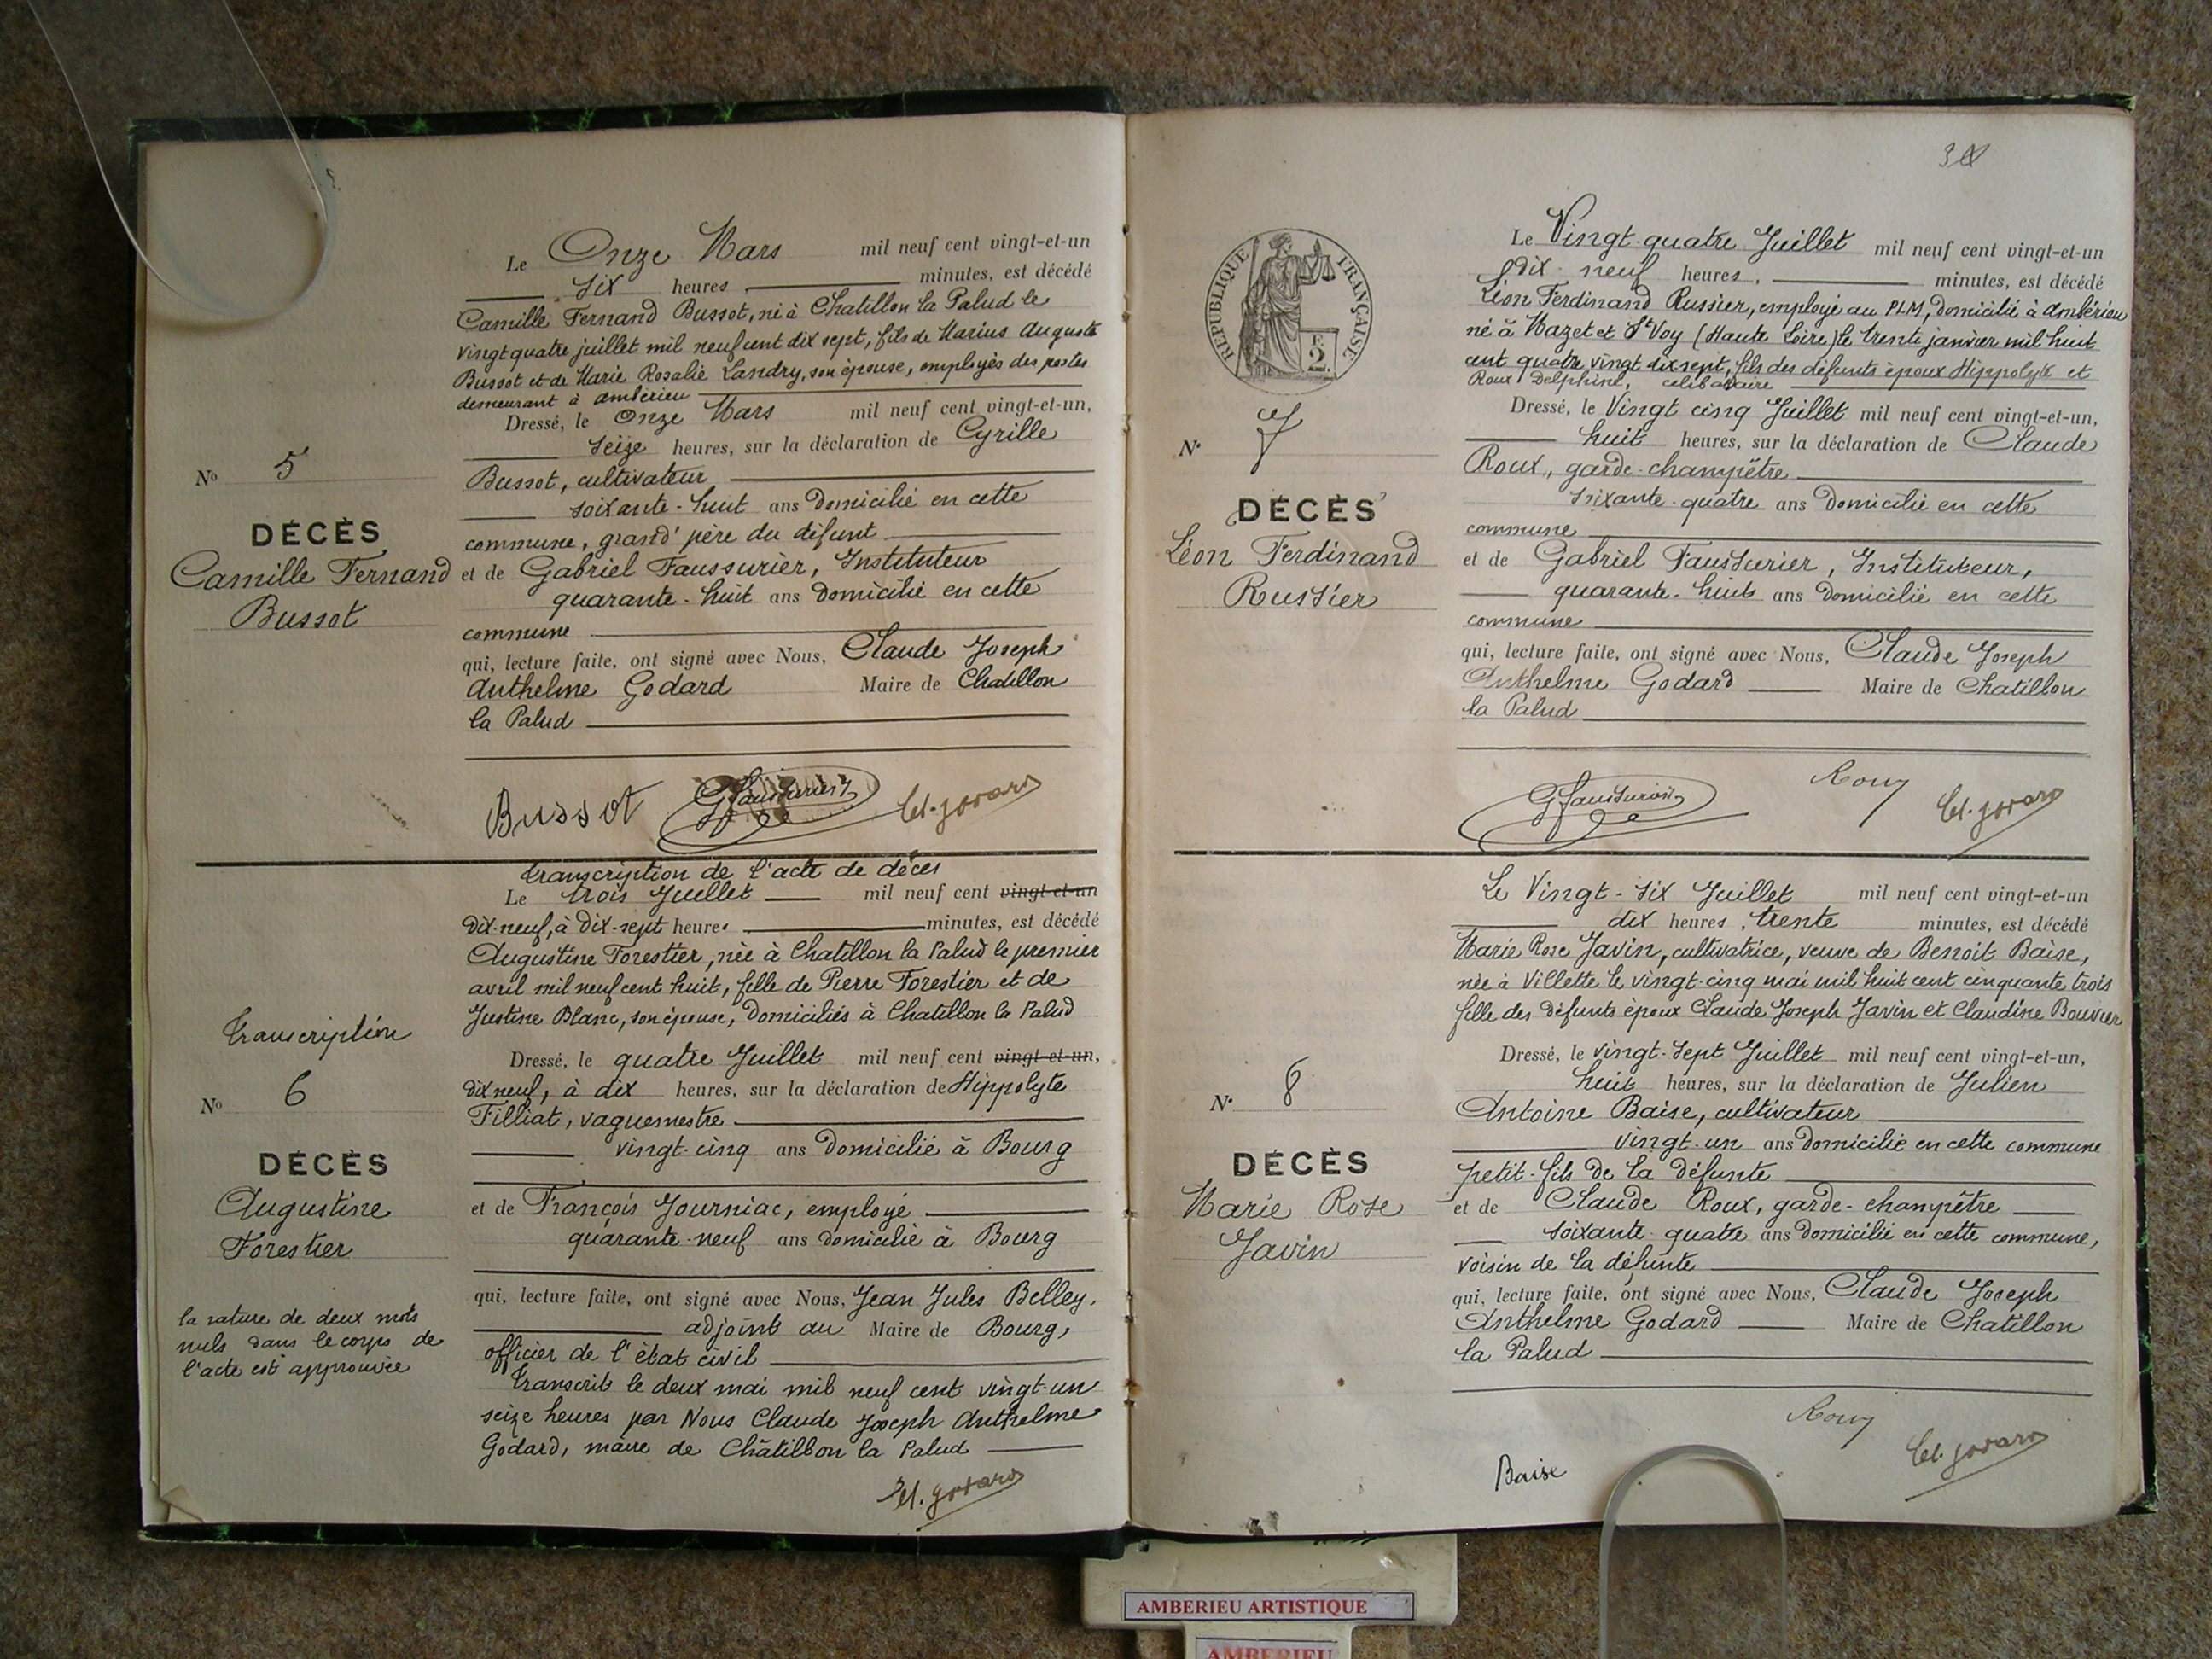 Le Onze Mars mil neuf cent vingt-et-un
six heures minutes, est décédé
Camille Fernand Bussot, né à Chatillon la Palud le
vingt quatre juillet mil neuf cent dix sept, fils de Marius Auguste
Bussot et de Marie Rosalie Landry, son épouse, employés des postes
demeurant à Ambérieu
Dressé, le Onze Mars mil neuf cent vingt-et-un,
seize heures, sur la déclaration de Cyrille
Bussot, cultivateur
soixante-huit ans domicilié en cette
commune, grand'père du défunt
et de Gabriel Faussurier, Instituteur
quarante-huit ans domicilié en cette
commune
qui, lecture faite, ont signé avec Nous, Claude Joseph
Anthelme Godard Maire de Chatillon
la Palud
No 5
DÉCÈS
Camille Fernand
Bussot
Bussot GFaussurier Cl. Godard
Transcription de l'acte de décès
Le trois Juillet mil neuf cent vingt-et-un
dix-neuf, à dix-sept heures minutes, est décédé
Augustine Forestier, née à Chatillon la Palud le premier
avril mil neuf cent huit, fille de Pierre Forestier et de
Justine Blanc, son épouse, domiciliés à Chatillon la Palud
Dressé, le quatre Juillet mil neuf cent vingt-et-un,
dix neuf, à dix heures, sur la déclaration de Hippolyte
Filliat, vaguemestre
vingt-cinq ans domicilié à Bourg
et de François Journiac, employé
quarante-neuf ans domicilié à Bourg
qui, lecture faite, ont signé avec Nous, Jean Jules Belley,
adjoint au Maire de Bourg,
officier de l'état civil
Transcrit le deux mai mil neuf cent vingt-un
seize heures par Nous Claude Joseph Anthelme
Godard, maire de Châtillon la Palud
Cl. Godard
Transcription
No 6
DÉCÈS
Augustine
Forestier
la rature de deux mots
nuls dans le corps de
l'acte est approuvée
RÉPUBLIQUE FRANÇAISE
2
Le Vingt-quatre Juillet mil neuf cent vingt-et-un
dix-neuf heures, minutes, est décédé
Léon Ferdinand Russier, employé au PLM, domicilié à Ambérieu
né à Mazet et St Voy (Haute Loire) le trente janvier mil huit
cent quatre vingt dix sept, fils des défunts époux Hippolyte et
Roux Delphine, célibataire
Dressé, le Vingt cinq Juillet mil neuf cent vingt-et-un,
huit heures, sur la déclaration de Claude
Roux, garde-champêtre
soixante-quatre ans domicilié en cette
commune
et de Gabriel Faussurier, Instituteur,
quarante-huit ans domicilié en cette
commune
qui, lecture faite, ont signé avec Nous, Claude Joseph
Anthelme Godard Maire de Chatillon
la Palud
N° 7
DÉCÈS
Léon Ferdinand
Russier
GFaussurier Roux Cl. Godard
Le Vingt-six Juillet mil neuf cent vingt-et-un
dix heures, trente minutes, est décédé
Marie Rose Javin, cultivatrice, veuve de Benoit Baise,
née à Villette le vingt-cinq mai mil huit cent cinquante trois
fille des défunts époux Claude Joseph Javin et Claudine Bouvier
Dressé, le vingt-sept Juillet mil neuf cent vingt-et-un,
huit heures, sur la déclaration de Julien
Antoine Baise, cultivateur
vingt-un ans domicilié en cette commune
petit-fils de la défunte
et de Claude Roux, garde-champêtre
soixante-quatre ans domicilié en cette commune,
voisin de la défunte
qui, lecture faite, ont signé avec Nous, Claude Joseph
Anthelme Godard Maire de Chatillon
la Palud
N° 8
DÉCÈS
Marie Rose
Javin
Baise Roux Cl. Godard
AMBERIEU ARTISTIQUE
AMBERIEU